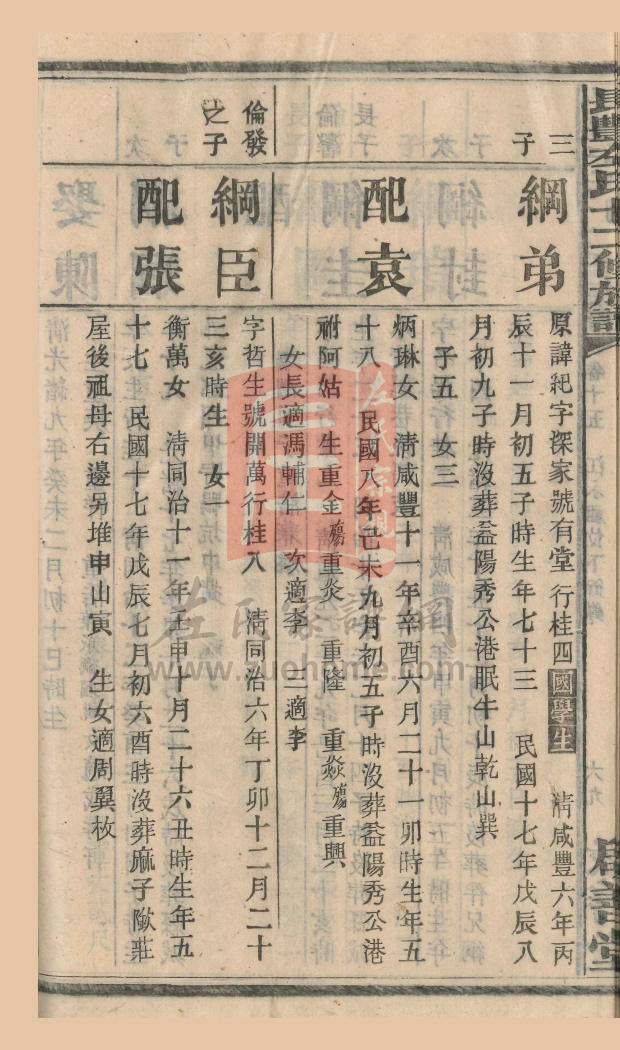 長豐左氏十二修族譜
卷十五
六九
居善堂
三子
綱弟
原諱紀字探家號有堂 行桂四 國學生 清咸豐六年丙
辰十一月初五子時生年七十三 民國十七年戊辰八
月初九子時沒葬益陽秀公港眠牛山乾山巽
子五 女三
配袁
炳琳女 清咸豐十一年辛酉六月二十一卯時生年五
十八 民國八年己未九月初五子時沒葬益陽秀公港
祔阿姑 生重金殤重炎 重隆 重焱殤重興
女長適馮輔仁 次適李 三適李
倫發之子
綱臣
字哲生號開萬行桂八 清同治六年丁卯十二月二十
三亥時生 女一
配張
衡萬女 清同治十一年壬申十月二十六丑時生年五
十七 民國十七年戊辰七月初六酉時沒葬麻子墈莊
屋後祖母右邊另堆申山寅 生女適周翼枚
左氏宗親
左氏家譜網
www.zuohome.com